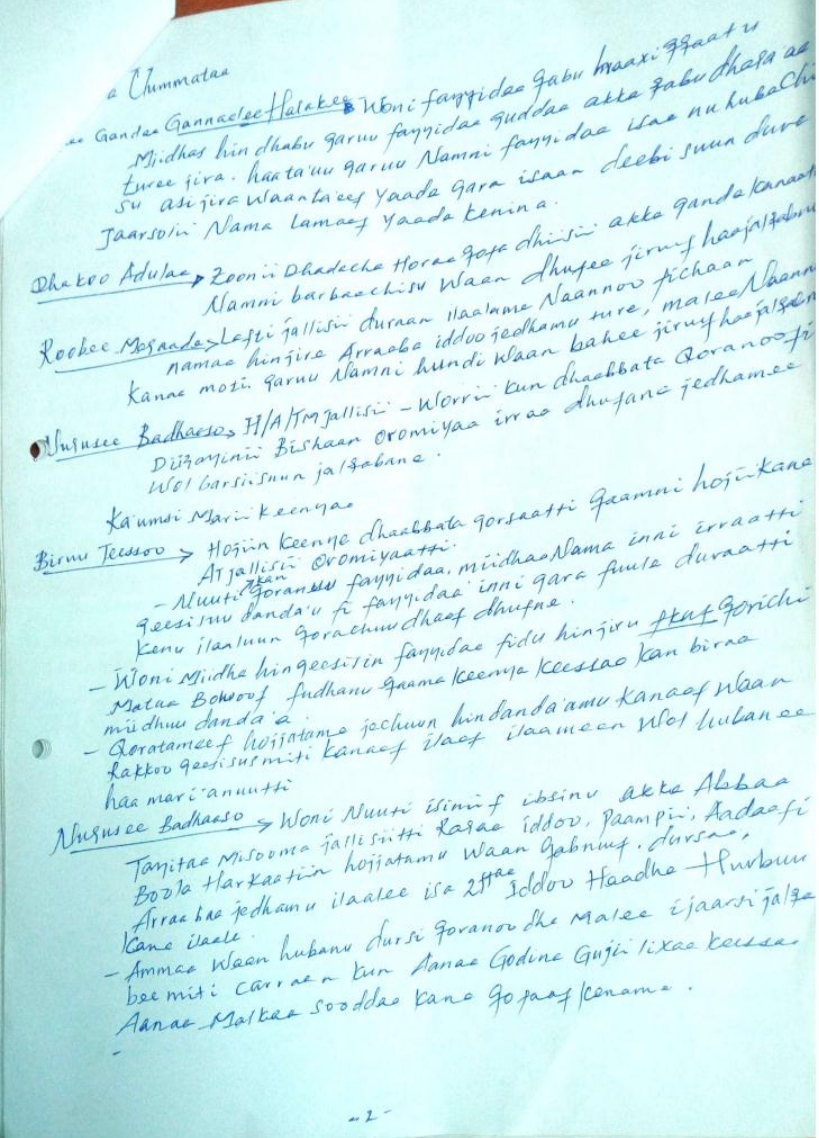 a Uummataa
Gandaa Gannaalee Halakee Woni fayyidaa qabu maaxiqqaatu
Miidhas hin dhabu garuu fayyidaa guddaa akka qabu dhaga'aa
turee jira. haata'uu garuu Namni fayyidaa isaa nu hubachi
su asi jira Waanta'eef Yaada gara isaan deebisuun dura
Jaarsolii Nama Lamaaf Yaada kenina.
Dhakoo Adulaa → Zoonii Dhadacha Horaa Gosa dhiisii akka ganda kanaatti
Namni barbaachisu Waan dhufee jiruuf haajalqabnu
Roobee Magaada → Lafti jallisii duraan ilaalame Naannoo fichaan
namaa hinjira Arraaba iddoo jedhamu ture, malee Naann
Kanaa motii garuu Namni hundi Waan bahee jiruuf haajalqabn
Nugusee Badhaaso → H/A/TM jallisii - Worri kun dhaabbata Qorannoofi
Dizaayinii Bishaan Oromiyaa irraa dhufana jedhamee
Wol barsiisnuun jalqabane.
Ka'umsi Marii Keenyaa
Birruu Teessoo → Hojiin Keenya dhaabbata gorsaatti Qaamni hojii kana
Atjallisii Oromiyaatti.
- Nuuti kan Qorannu fayyidaa, miidhaa Nama inni irraatti
geesisuu danda'u fi fayyidaa inni gara fuula duraatti
Kenu ilaaluun Qorachuudhaaf dhufne.
- Woni Miidha hingeesisin fayyidaa fidu hinjiru fknf Qorichi
Mataa Bowoof fudhanu Qaama Keenya Keessaa kan biraa
miidhuu danda'a.
- Qoratameef hojjatame jechuun hindanda'amu kanaaf Waan
Rakkoo geesisus miti kanaaf ilaaf ilaameen Wol hubanee
haa mari'anuutti
Nugusee Badhaaso → Woni Nuuti isiniif ibsinu akka Abbaa
Tayitaa Misooma jallisiitti Ragaa iddoo, Paampii, Aadaafi
Boola Harkaatiin hojjatamu Waan Qabnuuf. dursaa,
Arraabaa jedhamu ilaalee isa 2ffaa Iddoo Haadha Hurbuu
Kana ilaale.
- Ammaa Waan hubanu dursi Qorannoodha Malee ijaarsi jalqa
bee miti carraan kun Aanaa Godina Gujii lixaa keessaa
Aanaa Malkaa Sooddaa kana qofaaf kename.
-
-2-